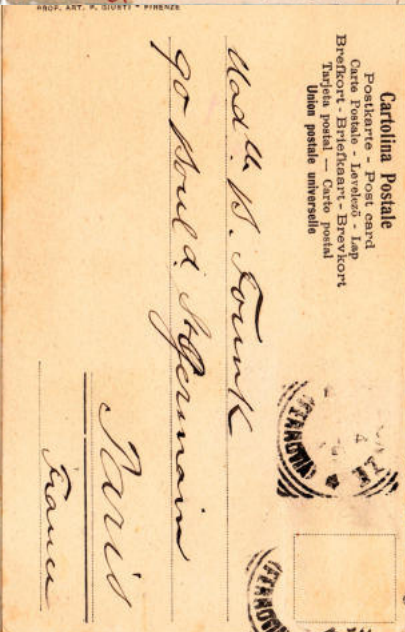 PROF. ART. P. GIUSTI - FIRENZE
Cartolina Postale
Postkarte - Post card
Carte Postale - Levelezö - Lap
Brefkort - Briefkaart - Brevkort
Tarjeta postal — Carto postal
Union postale universelle
Mad^lle B. Fournk
90 Bould. St Germain
Paris
France